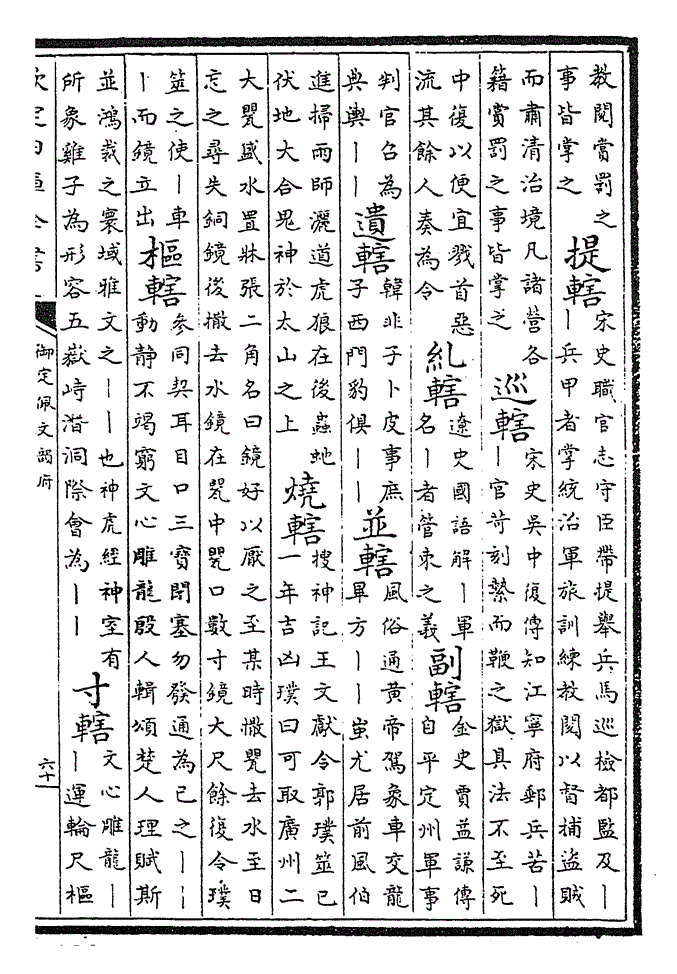 教閱賞罰之
事皆掌之
提轄
宋史職官志守臣帶提舉兵馬巡檢都監及丨
丨兵甲者掌統治軍旅訓練教閱以督捕盜賊
而肅清治境凡諸營各
籍賞罰之事皆掌之
巡轄
宋史吳中復傳知江寧府郵兵苦丨
丨官苛刻縶而鞭之獄具法不至死
中復以便宜戮首惡
流其餘人奏為令
糺轄
遼史國語解丨軍
名丨者管束之義
副轄
金史賈益謙傳
自平定州軍事
判官召為
典輿丨丨
遺轄
韓非子卜皮事庶
子西門豹俱丨丨
並轄
風俗通黃帝駕象車交龍
畢方丨丨蚩尤居前風伯
進掃雨師灑道虎狼在後蟲虵
伏地大合鬼神於太山之上
燒轄
搜神記王文獻令郭璞筮已
一年吉凶璞曰可取廣州二
大甖盛水置牀張二角名曰鏡好以厭之至某時撤甖去水至日
忘之尋失銅鏡後撤去水鏡在甖中甖口數寸鏡大尺餘復令璞
筮之使丨車
丨而鏡立出
樞轄
參同契耳目口三寶閉塞勿發通為已之丨丨
動靜不竭窮文心雕龍殷人輯頌楚人理賦斯
並鴻裁之寰域雅文之丨丨也神虎經神室有
所象雞子為形容五嶽峙潛洞際會為丨丨
寸轄
文心雕龍丨
丨運輪尺樞
欽定四庫全書
御定佩文韻府
六十